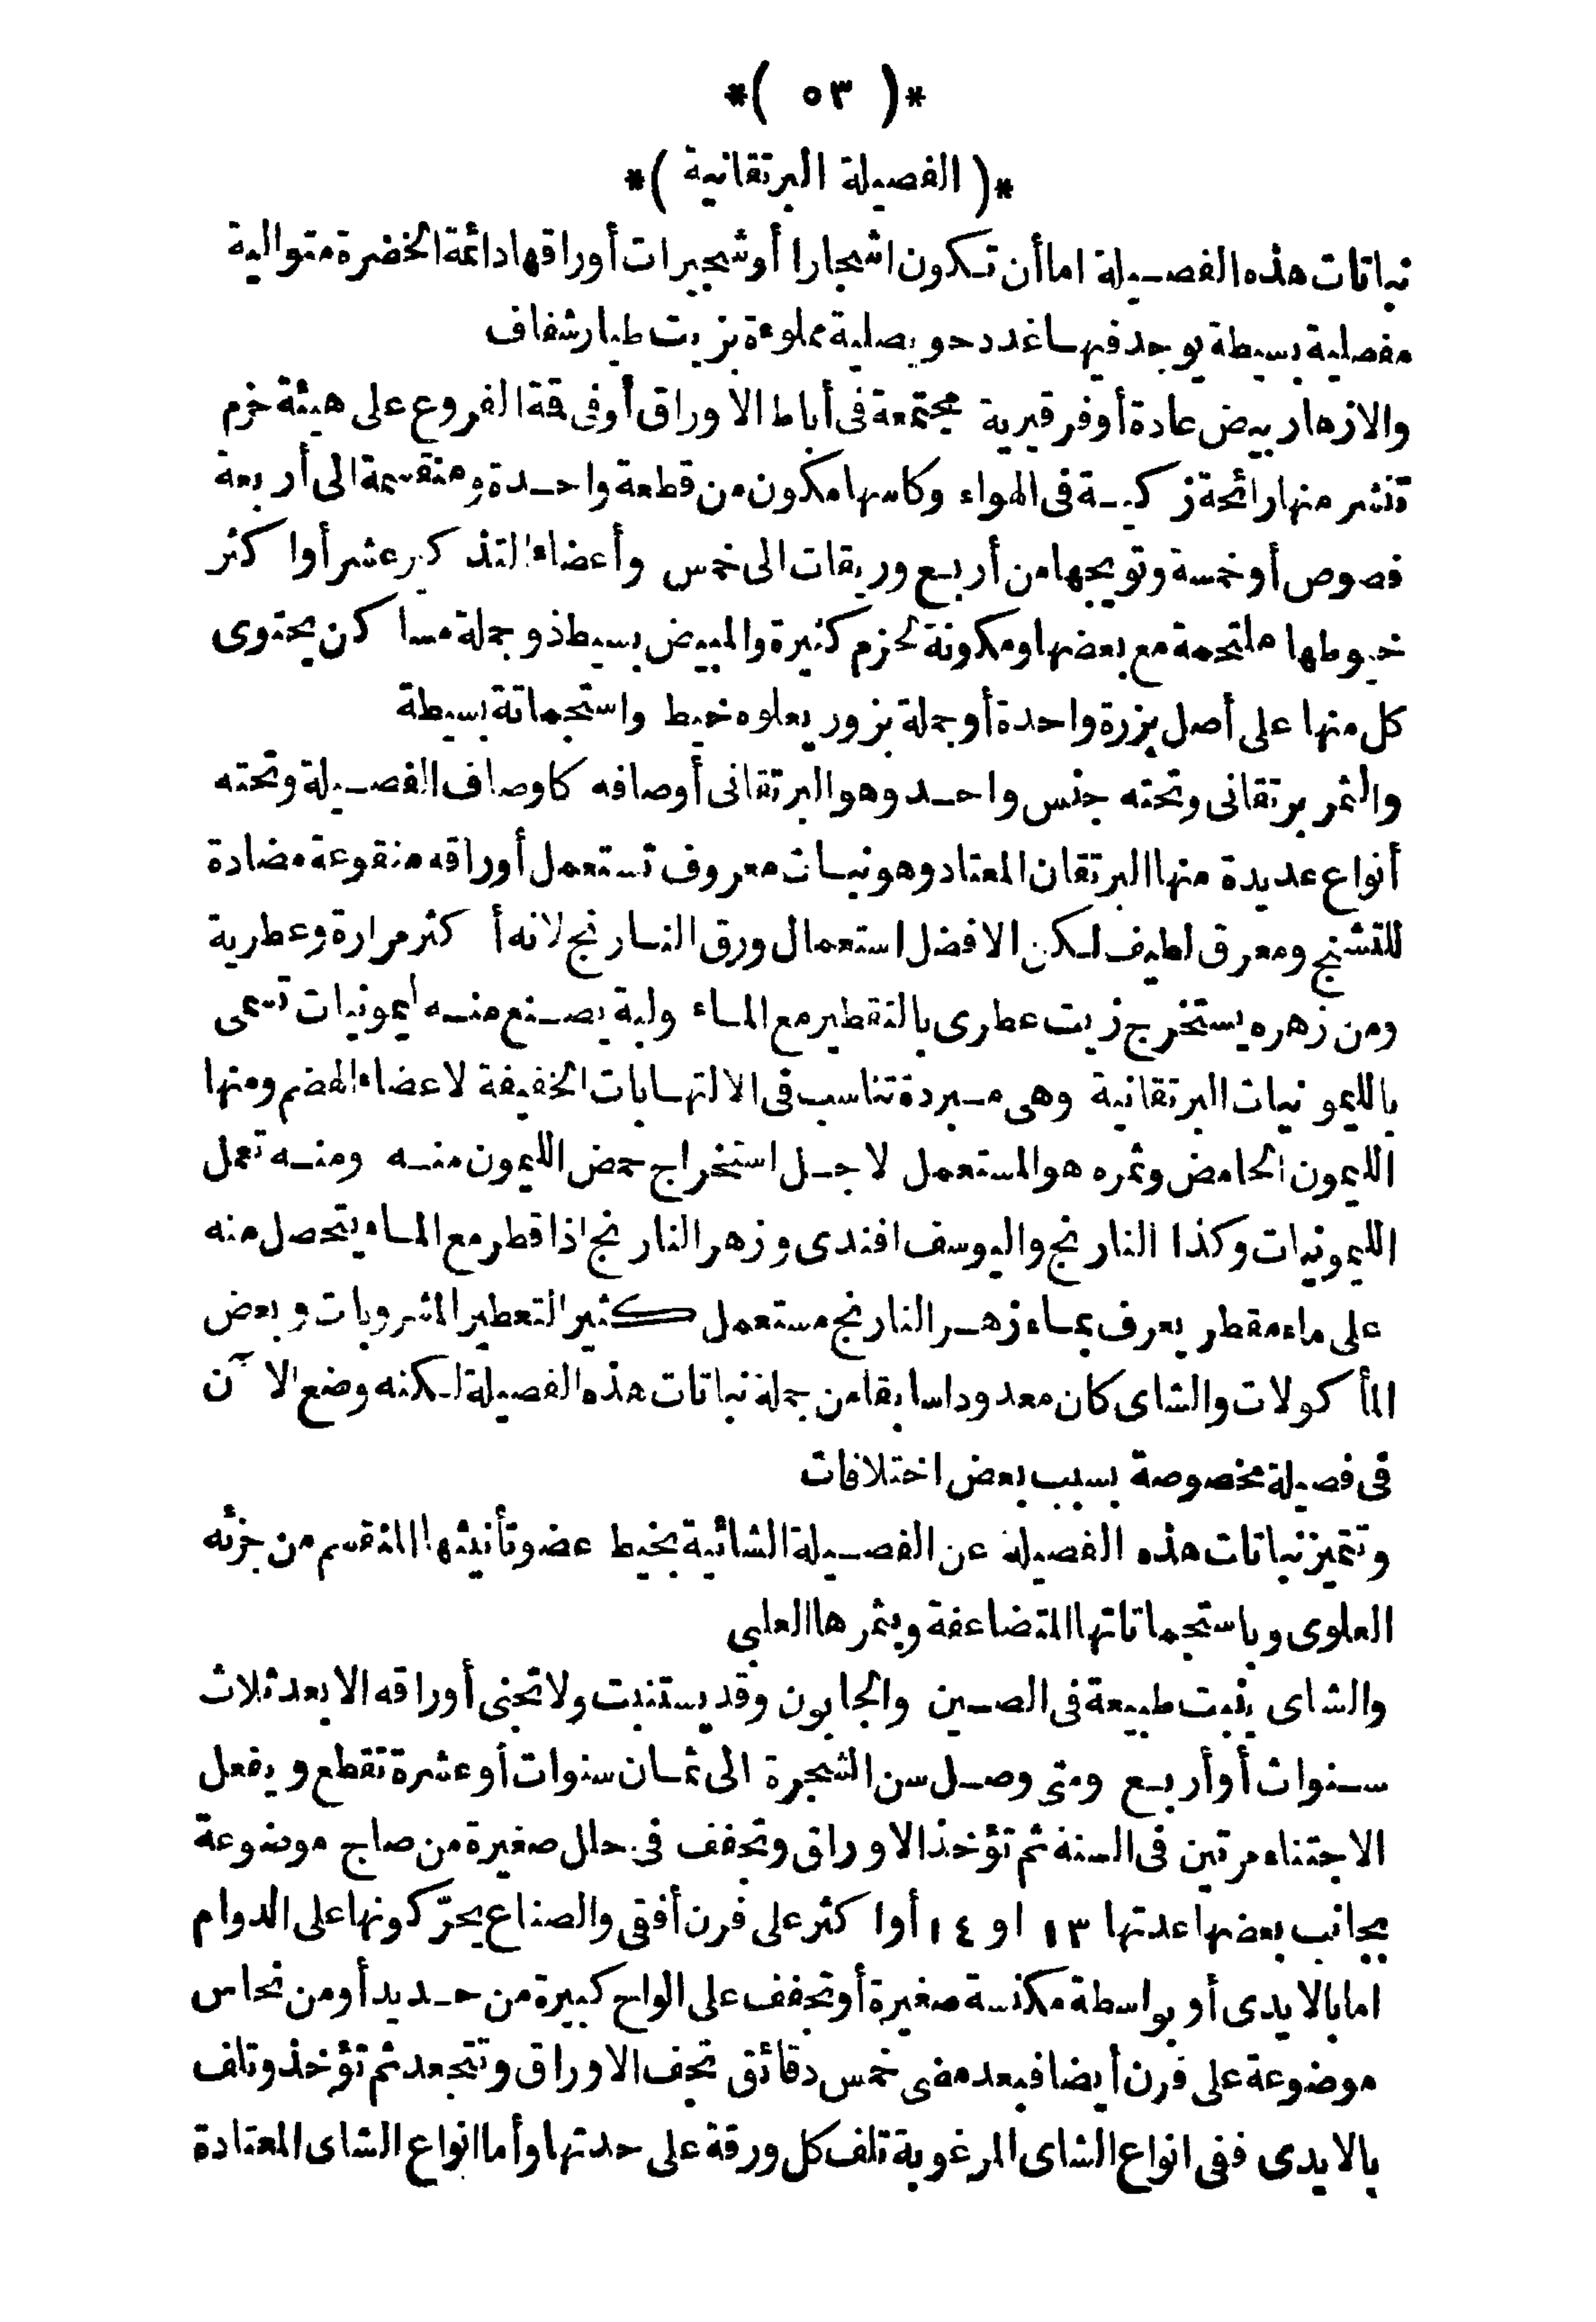 *( ٥٣ )*
*( الفصيلة البرتقانية )*
نباتات هذه الفصيلة اما أن تكون اشجارا أو شجيرات أوراقها دائمة الخضرة متوالية
مفصلية بسيطة يوجد فيها غدد حويصلية مملوءة بزيت طيار شفاف
والازهار بيض عادة أو فرقيرية مجتمعة فى أباط الاوراق أو فى قمة الفروع على هيئة خزم
تنشر منها رائحة زكية فى الهواء وكاسها مكون من قطعة واحدة ومنقسمة الى أربعة
فصوص أو خمسة وتويجها من أربع وريقات الى خمس وأعضاء التذكير عشر أو اكثر
خيوطها ملتحمة مع بعضها ومكونة لحزم كثيرة والمبيض بسيط ذو جملة مساكن يحتوى
كل منها على أصل بزرة واحدة أو جملة بزور يعلوه خيط واستجماتة بسيطة
والثمر برتقانى وتحته جنس واحد وهو البرتقانى أوصافه كاوصاف الفصيلة وتحته
أنواع عديدة منها البرتقان المعتاد وهو نبات معروف تستعمل أوراقه منقوعة مضادة
للتشنج ومعرق لطيف لكن الافضل استعمال ورق النارنج لانه أكثر مرارة وعطرية
ومن زهره يستخرج زيت عطرى بالتقطير مع الماء ولبه يصنع منه ليمونيات تسمى
بالليمونيات البرتقانية وهى مبردة تناسب فى الالتهابات الخفيفة لاعضاء الهضم ومنها
الليمون الحامض وثمره هو المستعمل لاجل استخراج حمض الليمون منه ومنه تعمل
الليمونيات وكذا النارنج واليوسف افندى وزهر النارنج اذا قطر مع الماء يتحصل منه
على ماء مقطر يعرف بماء زهر النارنج مستعمل كثير التعطير المشروبات وبعض
المأكولات والشاى كان معدودا سابقا من جملة نباتات هذه الفصيلة لكنه وضع الآن
فى فصيلة مخصوصة بسبب بعض اختلافات
وتتميز نباتات هذه الفصيلة عن الفصيلة الشائية بخيط عضو تأنيثها المنقسم من جزئه
العلوى وباستجماتاتها المتضاعفة وبثمرها العلبى
والشاى ينبت طبيعة فى الصين والجابون وقد يستنبت ولا تجنى أوراقه الا بعد ثلاث
سنوات أو أربع ومتى وصل سن الشجرة الى ثمان سنوات أو عشرة تقطع ويفعل
الاجتناء مرتين فى السنة ثم تؤخذ الاوراق وتجفف فى حلل صغيرة من صاج موضوعة
بجانب بعضها عدتها ١٣ او ١٤ أو اكثر على فرن أفقى والصناع يحرّكونها على الدوام
اما بالايدى أو بواسطة مكنسة صغيرة أو تجفف على الواح كبيرة من حديد أو من نحاس
موضوعة على فرن أيضا فبعد مضى خمس دقائق تجف الاوراق وتتجعد ثم تؤخذ وتلف
بالايدى ففى انواع الشاى المرغوبة تلف كل ورقة على حدتها وأما انواع الشاى المعتادة